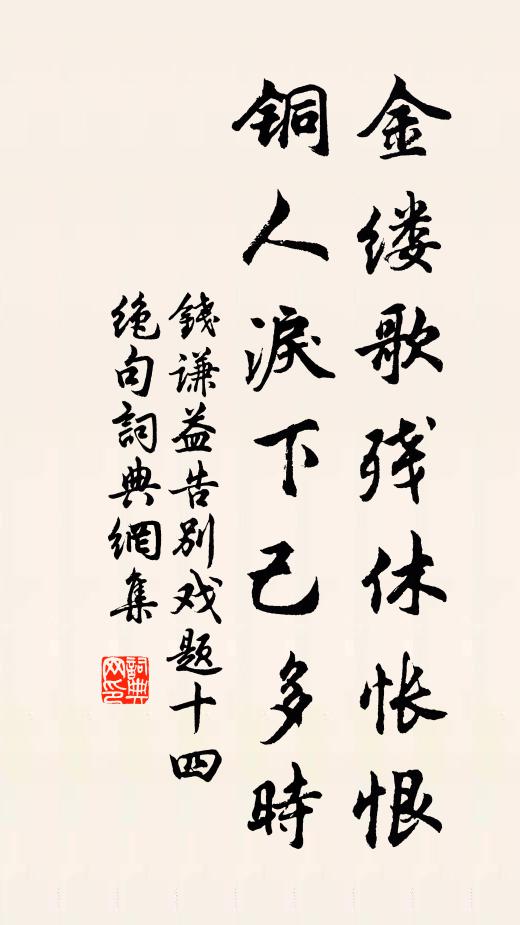 金缕歌残休怅恨
铜人淚下已多時
錢谦益告别戏题十四
绝句詞典網集
詞典网印